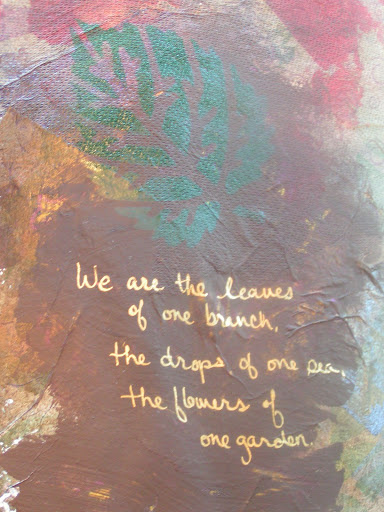 We are the leaves
of one branch,
the drops of one sea,
the flowers of
one garden.